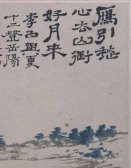 雁引愁
心去山銜
好月来
李白與夏
十二登岳陽